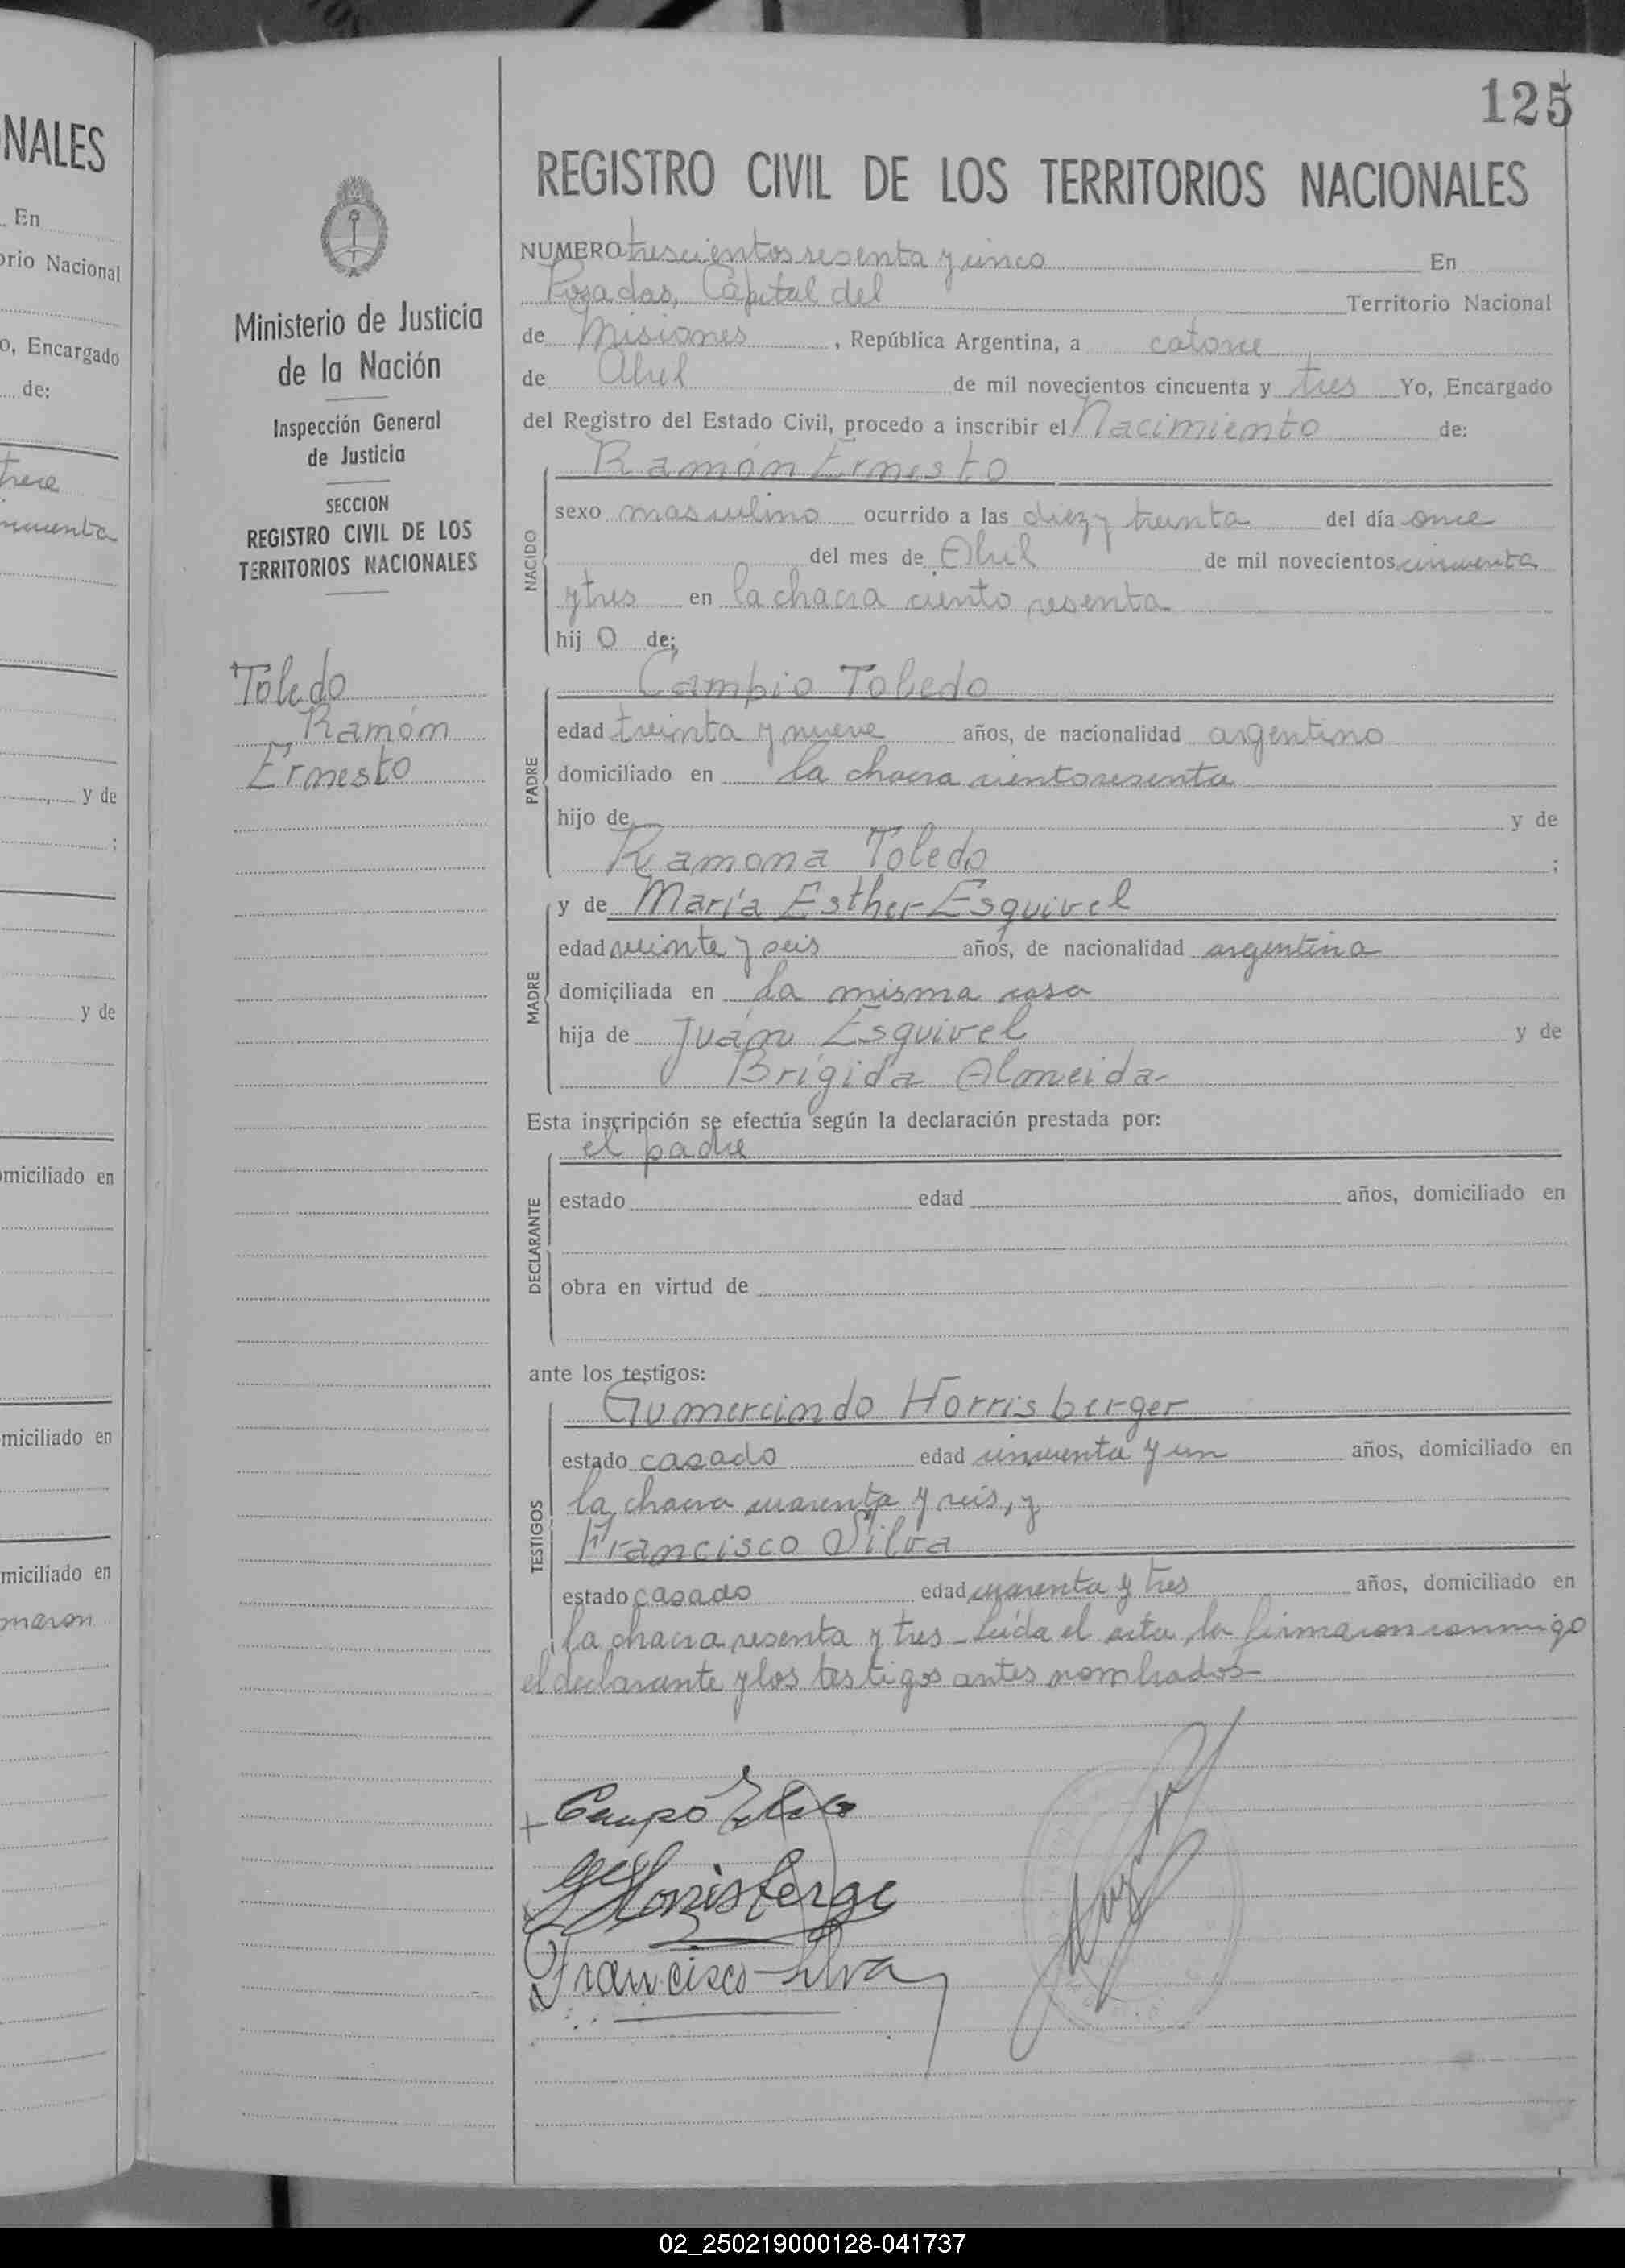 125
REGISTRO CIVIL DE LOS TERRITORIOS NACIONALES
NUMERO trescientos sesenta y cinco En
Posadas, Capital del Territorio Nacional
de Misiones, República Argentina, a catorce
de Abril de mil novecientos cincuenta y tres Yo, Encargado
del Registro del Estado Civil, procedo a inscribir el Nacimiento de:
Ramón Ernesto
NACIDO
sexo masculino ocurrido a las diez y treinta del día once
del mes de Abril de mil novecientos cincuenta
y tres en la chacra ciento sesenta
hijo de:
Campio Toledo
PADRE
edad treinta y nueve años, de nacionalidad argentino
domiciliado en la chacra ciento sesenta
hijo de y de
Ramona Toledo ;
y de María Esther Esquivel
MADRE
edad veinte y seis años, de nacionalidad argentina
domiciliada en la misma casa
hija de Juán Esquivel y de
Brígida Almeida-
Esta inscripción se efectúa según la declaración prestada por:
el padre
DECLARANTE
estado edad años, domiciliado en
obra en virtud de
ante los testigos:
Gumercindo Horrisberger
TESTIGOS
estado casado edad cincuenta y un años, domiciliado en
la chacra cuarenta y seis, y
Francisco Silva
estado casado edad cuarenta y tres años, domiciliado en
la chacra sesenta y tres - Leída el acta, la firmaron conmigo
el declarante y los testigos antes nombrados-
Francisco Silva
Ministerio de Justicia
de la Nación
Inspección General
de Justicia
SECCION
REGISTRO CIVIL DE LOS
TERRITORIOS NACIONALES
Toledo
Ramón
Ernesto
NALES
En
orio Nacional
o, Encargado
de:
trece
ncuenta
y de
;
y de
omiciliado en
miciliado en
miciliado en
maron
02_250219000128-041737